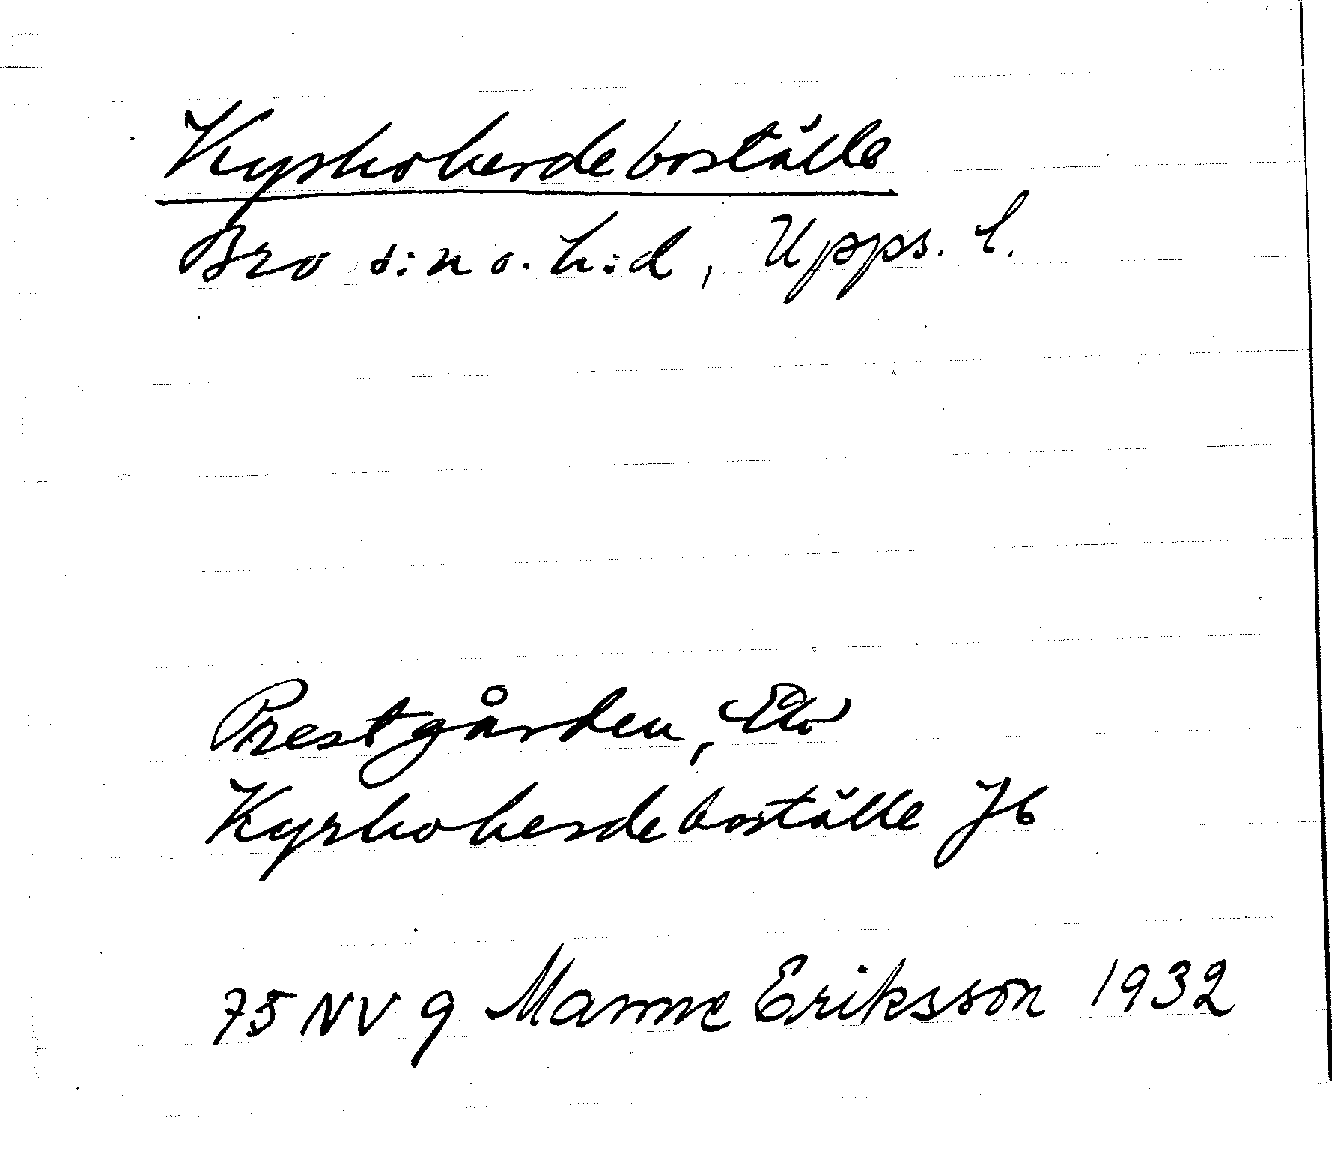 Kyrkoherdeboställe
Bro s:n o. h:d, Upps. l.
Prestgården, Ek
Kyrkoherdeboställe Jb
75 NV 9 Manne Eriksson 1932